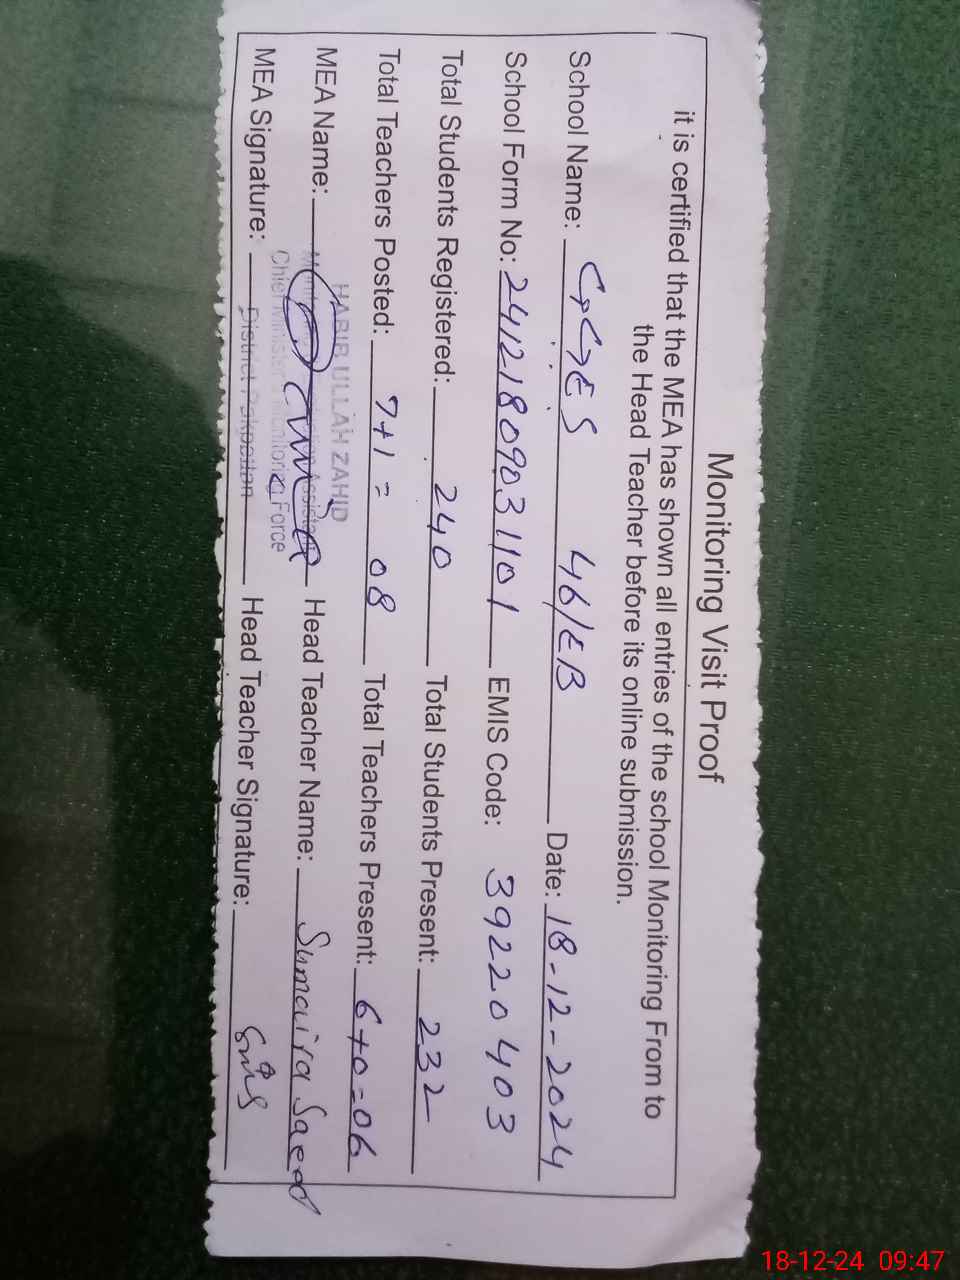 Monitoring Visit Proof
it is certified that the MEA has shown all entries of the school Monitoring From to
the Head Teacher before its online submission.
School Name: GGES 46/EB Date: 18-12-2024
School Form No: 24121809031101 EMIS Code: 39220403
Total Students Registered: 240 Total Students Present: 232
Total Teachers Posted: 7+1 = 08 Total Teachers Present: 6+0=06
HABIB ULLAH ZAHID
MEA Name: Head Teacher Name: Sumaira Saeed
Chief Minister's Monitoring Force
MEA Signature: District Pakpattan Head Teacher Signature:
18-12-24 09:47